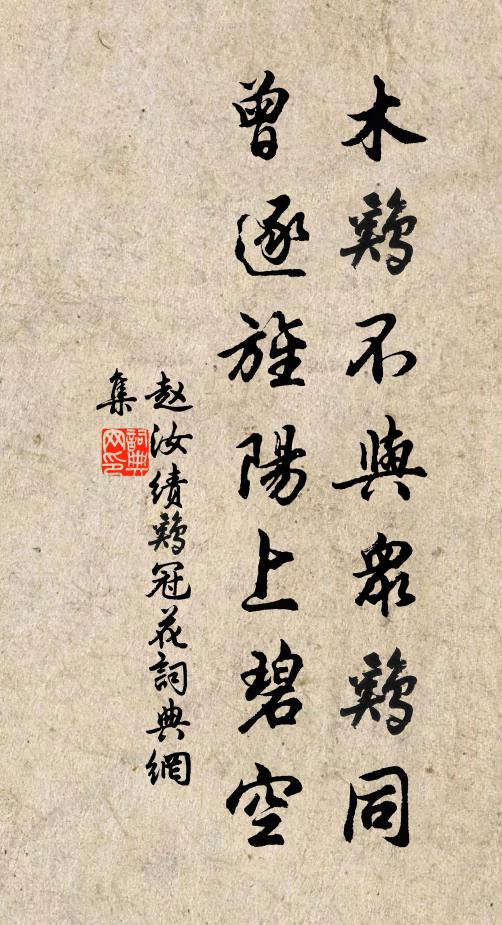 木鷄不與眾鷄同
曾逐旌陽上碧空
赵汝績鷄冠花詞典網
集
詞典
网印